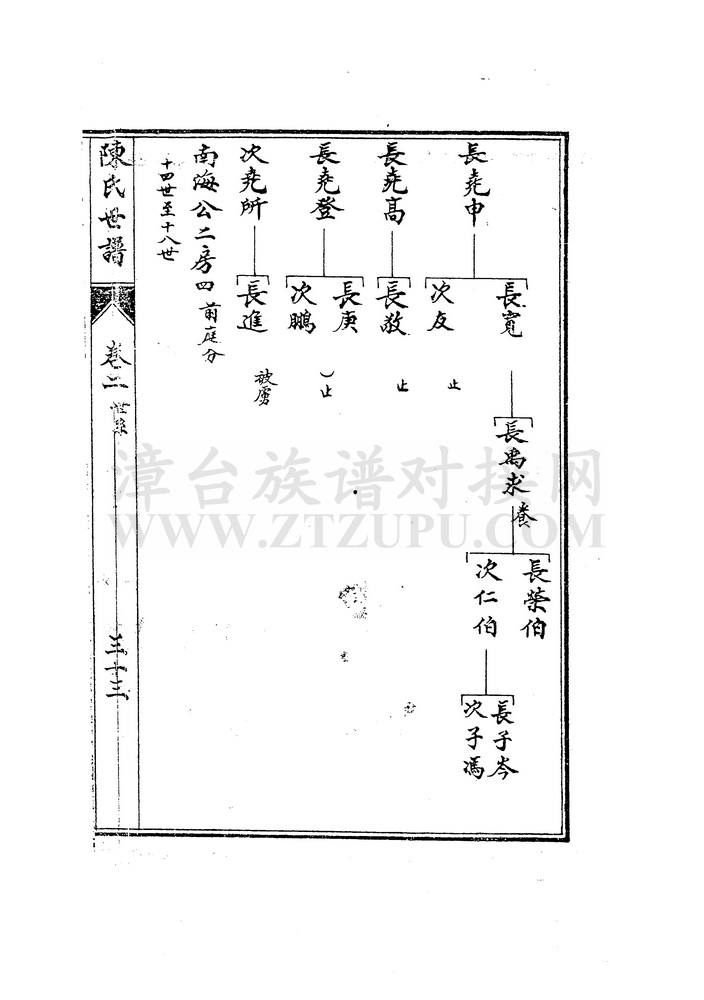 長堯申
長寬
次友
止
長禹求
養
長榮伯
次仁伯
長子岑
次子馮
長堯高
長敬
止
長堯登
長庚
次鵬
止
次堯所
長進
被虜
南海公二房四
前庭分
十四世至十八世
陳氏世譜
卷二
世系
三十三
漳台族谱对接网
WWW.ZTZUPU.COM